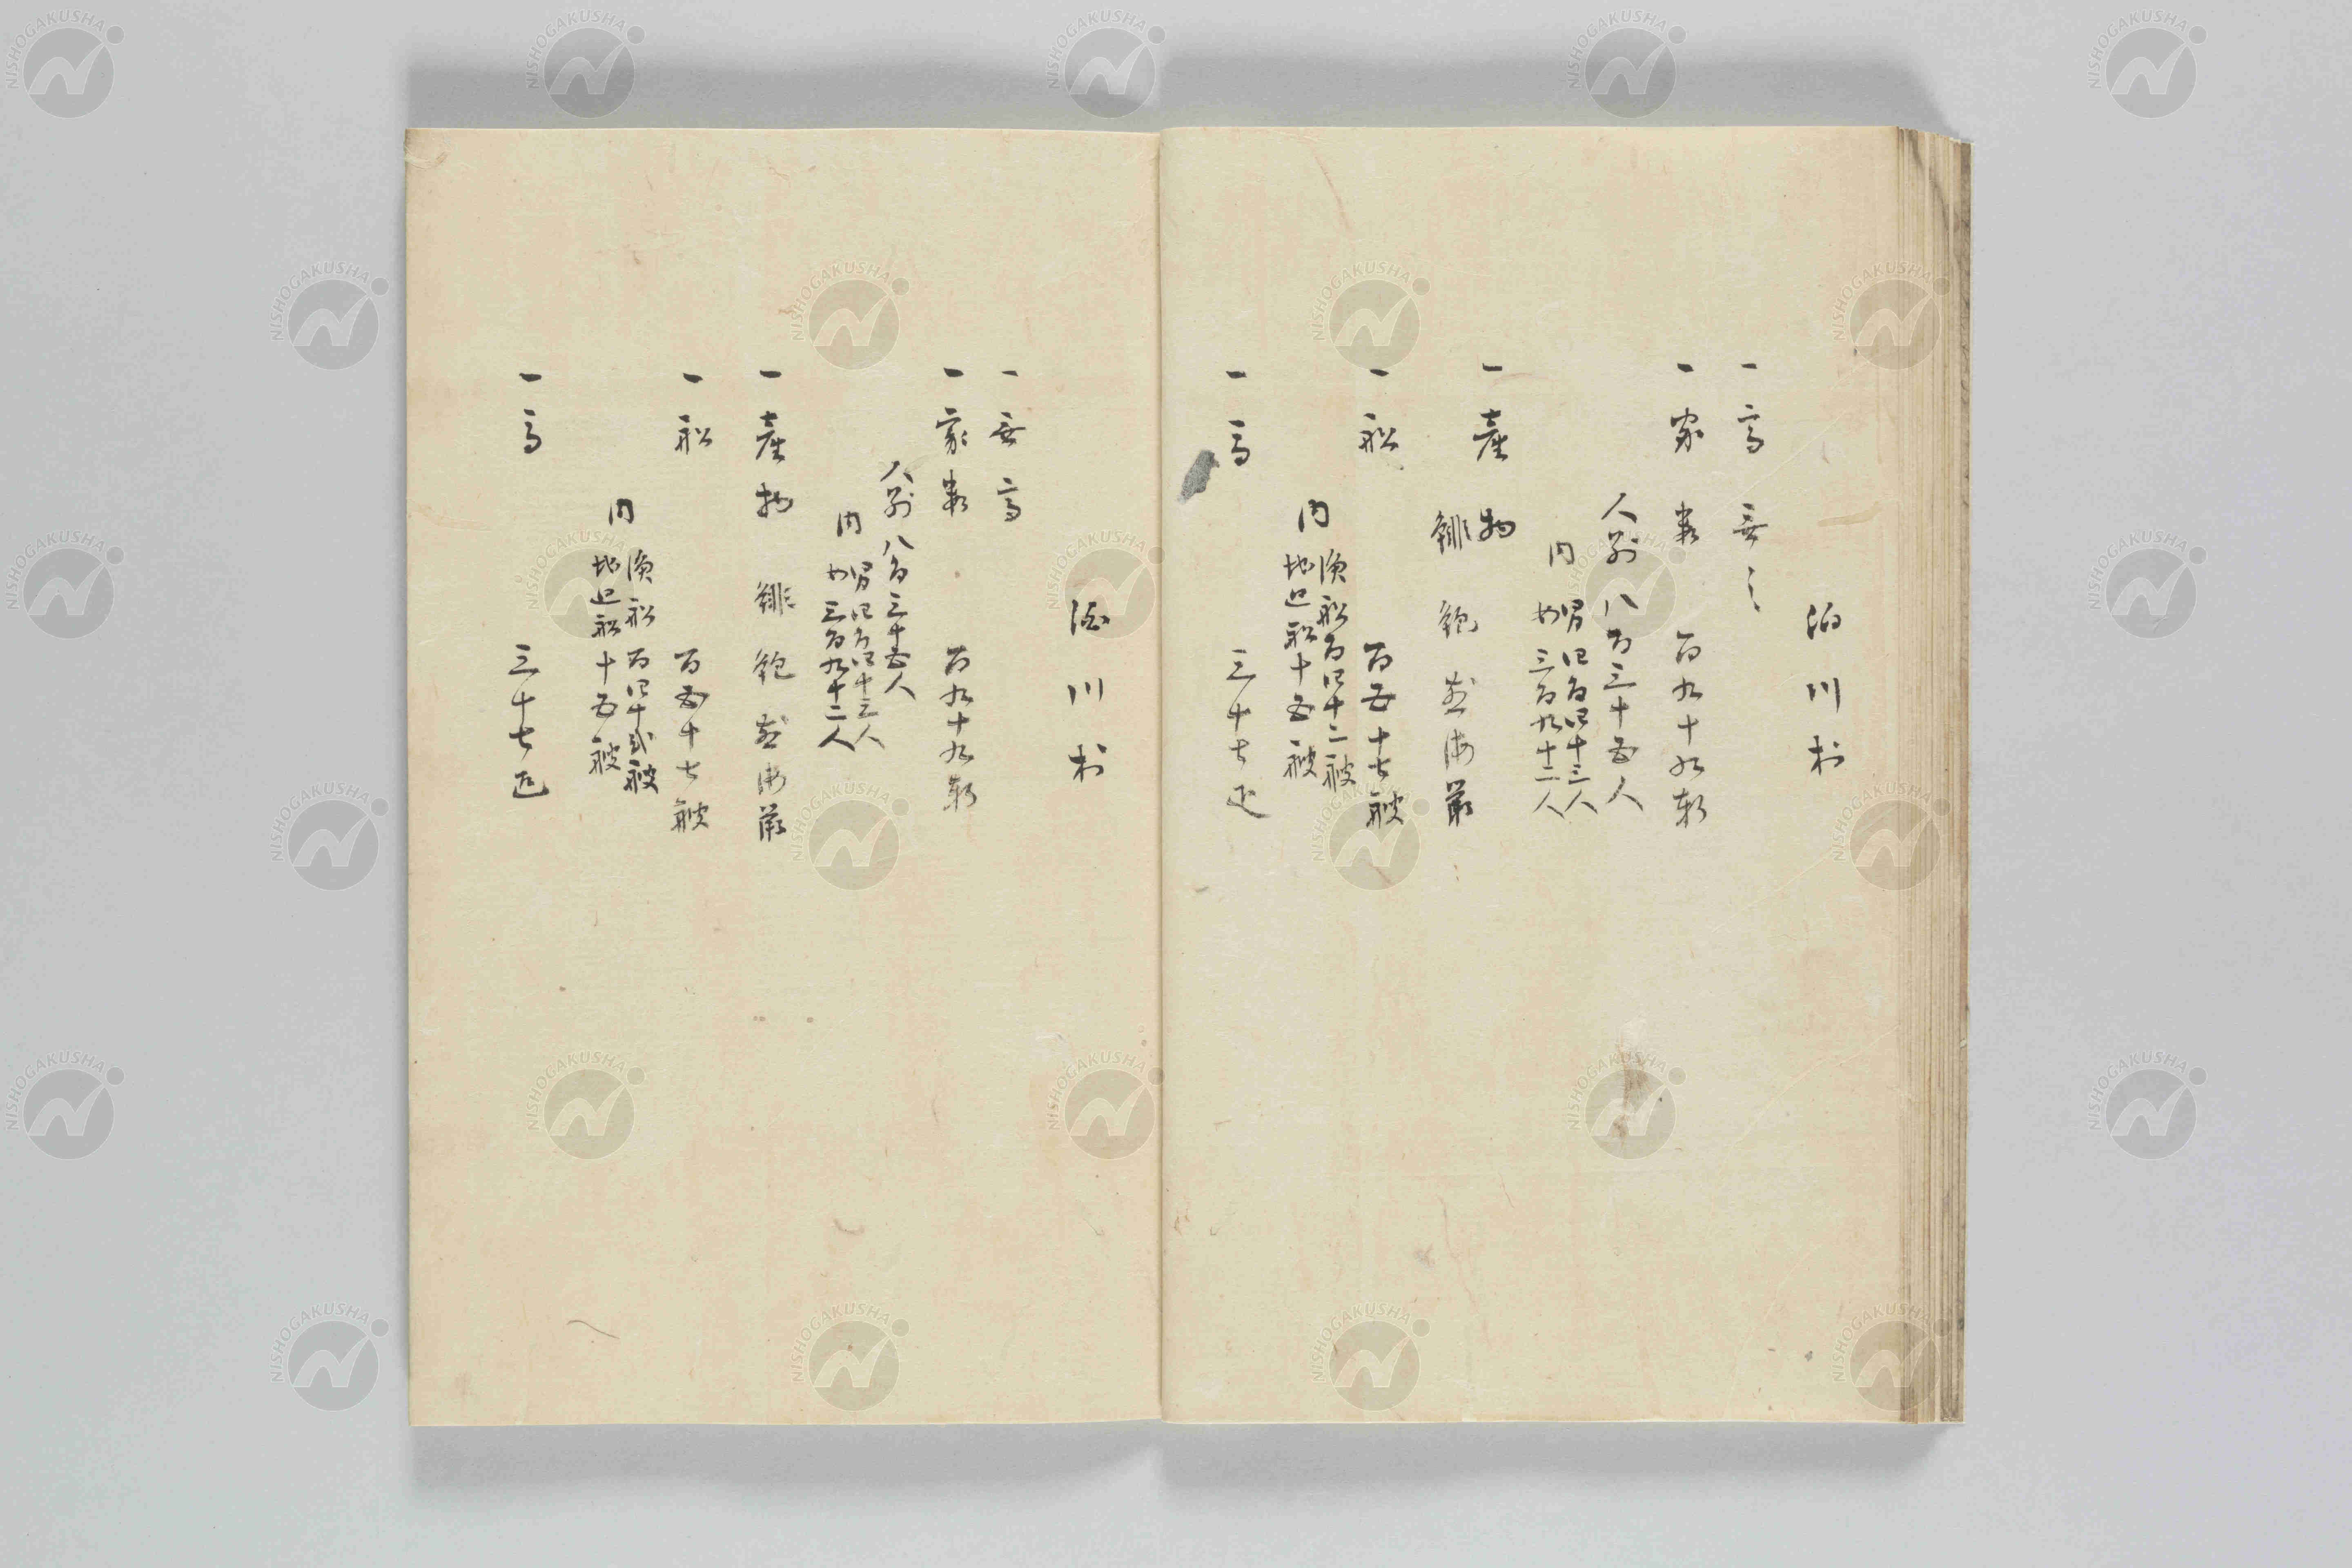 泊川村
一高無之
一家数 百九十九軒
人別 八百三十五人
内 男 四百四十三人
女 三百九十二人
一産物
鯡 鮑 並海草
一舩 百五十七艘
内 漁舩百四十二艘
地廻舩十五艘
一馬 三十七疋
泊川村
一無高
一家数 百九十九軒
人別八百三十五人
内 男四百四十三人
女三百九十二人
一産物 鯡 鮑 並海草
一舩 百五十七艘
内 漁舩 百四十弐艘
地廻舩十五艘
一馬 三十七疋
NISHOGAKUSHA